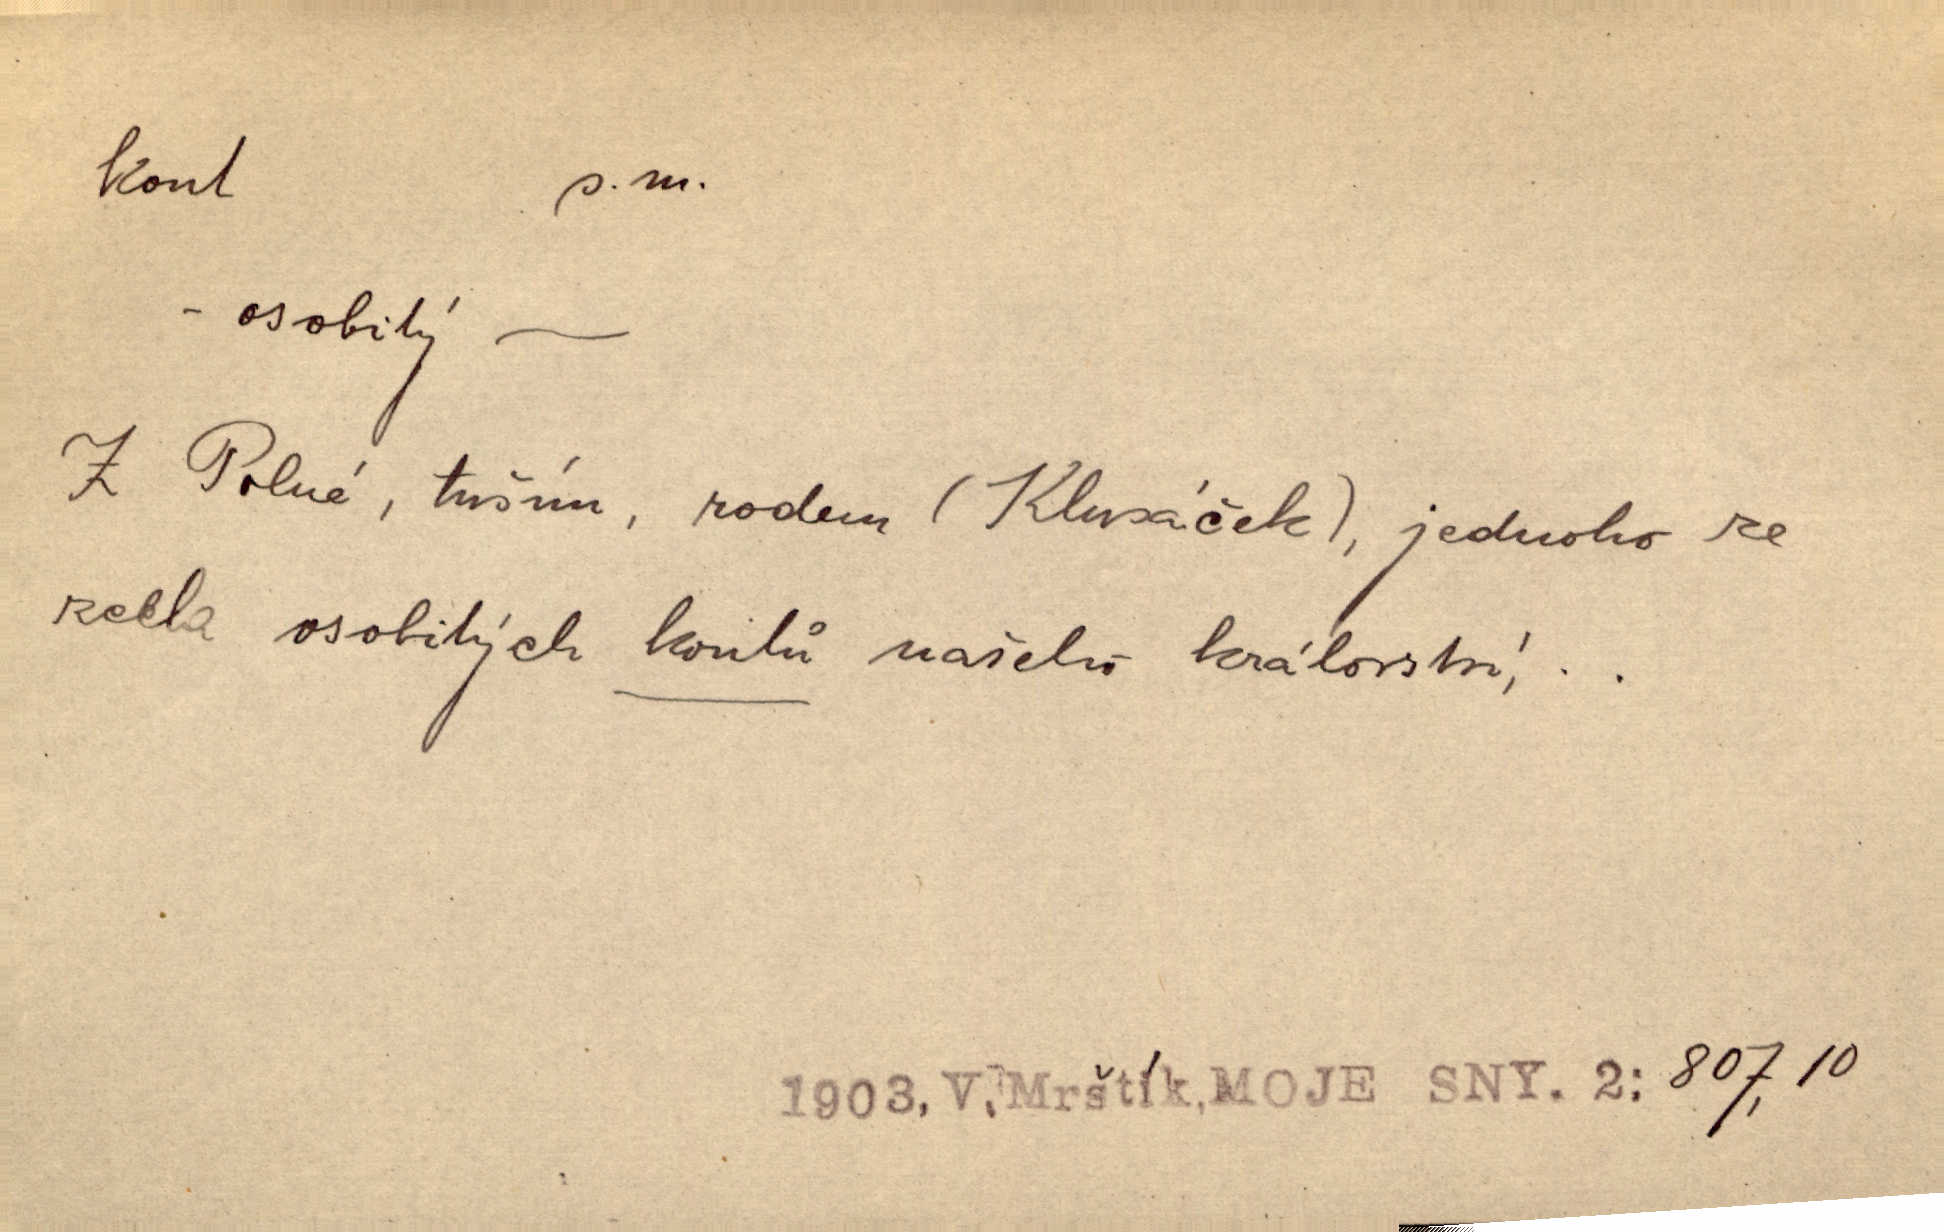 kout s.m.
- osobitý —
Z Polné, tuším, rodem (Klusáček), jednoho ze
zcela osobitých koutů našeho království, . .
1903, V. Mrštík, MOJE SNY. 2: 807, 10